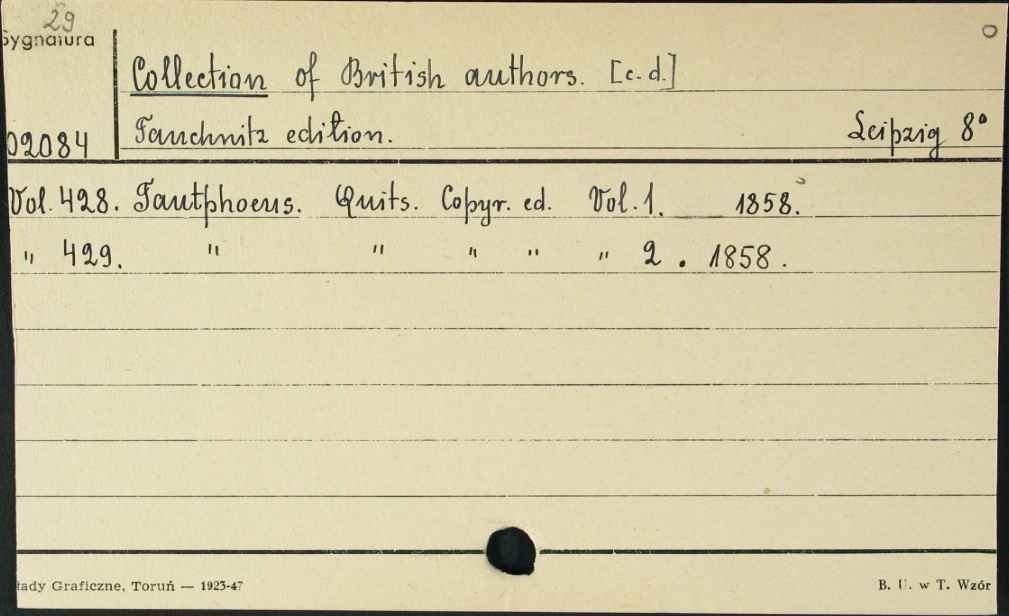 29
Sygnatura
Collection of British authors. [c.d.]
02084
Tauchnitz edition. Leipzig 8°
Vol. 428. Tautphoeus. Quits. Copyr. ed. Vol. 1. 1858.
" 429. " " " " " 2. 1858.
łady Graficzne, Toruń — 1923-47
B. U. w T. Wzór